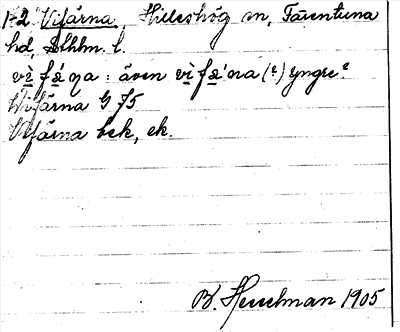 1-2 Vifärna, Hilleshög sn, Färentuna
hd, Sthlm. l.
vè fǽ ṇa : även vì fǽ'na (°) yngre
Wifärna G 75
Vifärna bek, ek.
B. Hesselman 1905